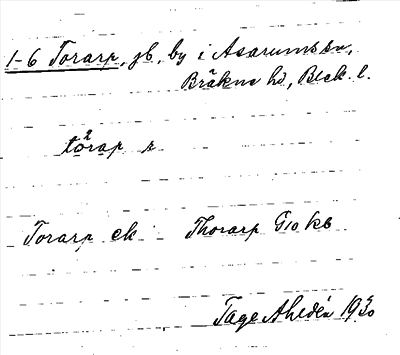 1-6 Torarp, jb, by i Asarums sn,
Bräkne hd, Blek. l.
tårap s
Torarp ek Thorarp G10 kb
Tage Ahldén 1930